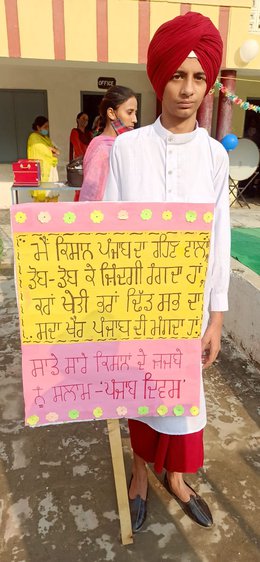 OFFICE
"ਮੈਂ ਕਿਸਾਨ ਪੰਜਾਬ ਦਾ ਰਹਿਣ ਵਾਲਾ,
ਡੋਬ-ਡੋਬ ਕੇ ਜ਼ਿੰਦਗੀ ਰੰਗਦਾ ਹਾਂ,
ਕਰਾਂ ਖੇਤੀ ਭਰਾਂ ਢਿੱਤ ਸਭ ਦਾ
ਸਦਾ ਖੈਰ ਪੰਜਾਬ ਦੀ ਮੰਗਦਾ ਹਾਂ
ਸਾਡੇ ਸਾਰੇ ਕਿਸਾਨਾਂ ਦੇ ਜਜ਼ਬੇ
ਨੂੰ ਸਲਾਮ - 'ਪੰਜਾਬ ਦਿਵਸ'